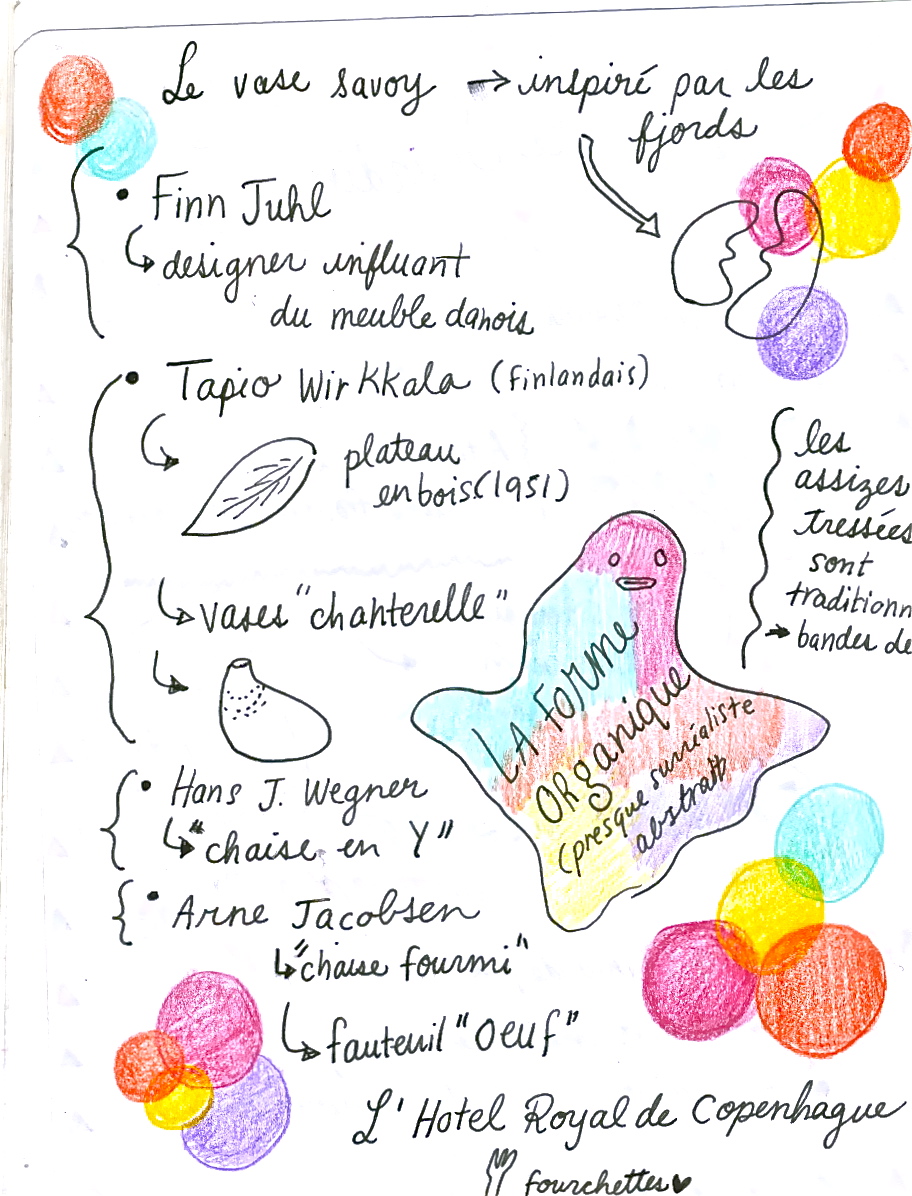 Le vase savoy → inspiré par les
fjords
• Finn Juhl
↳ designer influant
du meuble danois
• Tapio Wirkkala (finlandais)
↳ plateau
en bois (1951)
↳ vases "chanterelle"
les
assizes
tressées
sont
traditionn
→ bandes de
LA FORME
ORganique
(presque surréaliste
abstrait
• Hans J. Wegner
↳ "chaise en Y"
• Arne Jacobsen
↳ "chaise fourmi"
↳ fauteuil "Oeuf"
L'Hotel Royal de Copenhague
fourchettes ♥